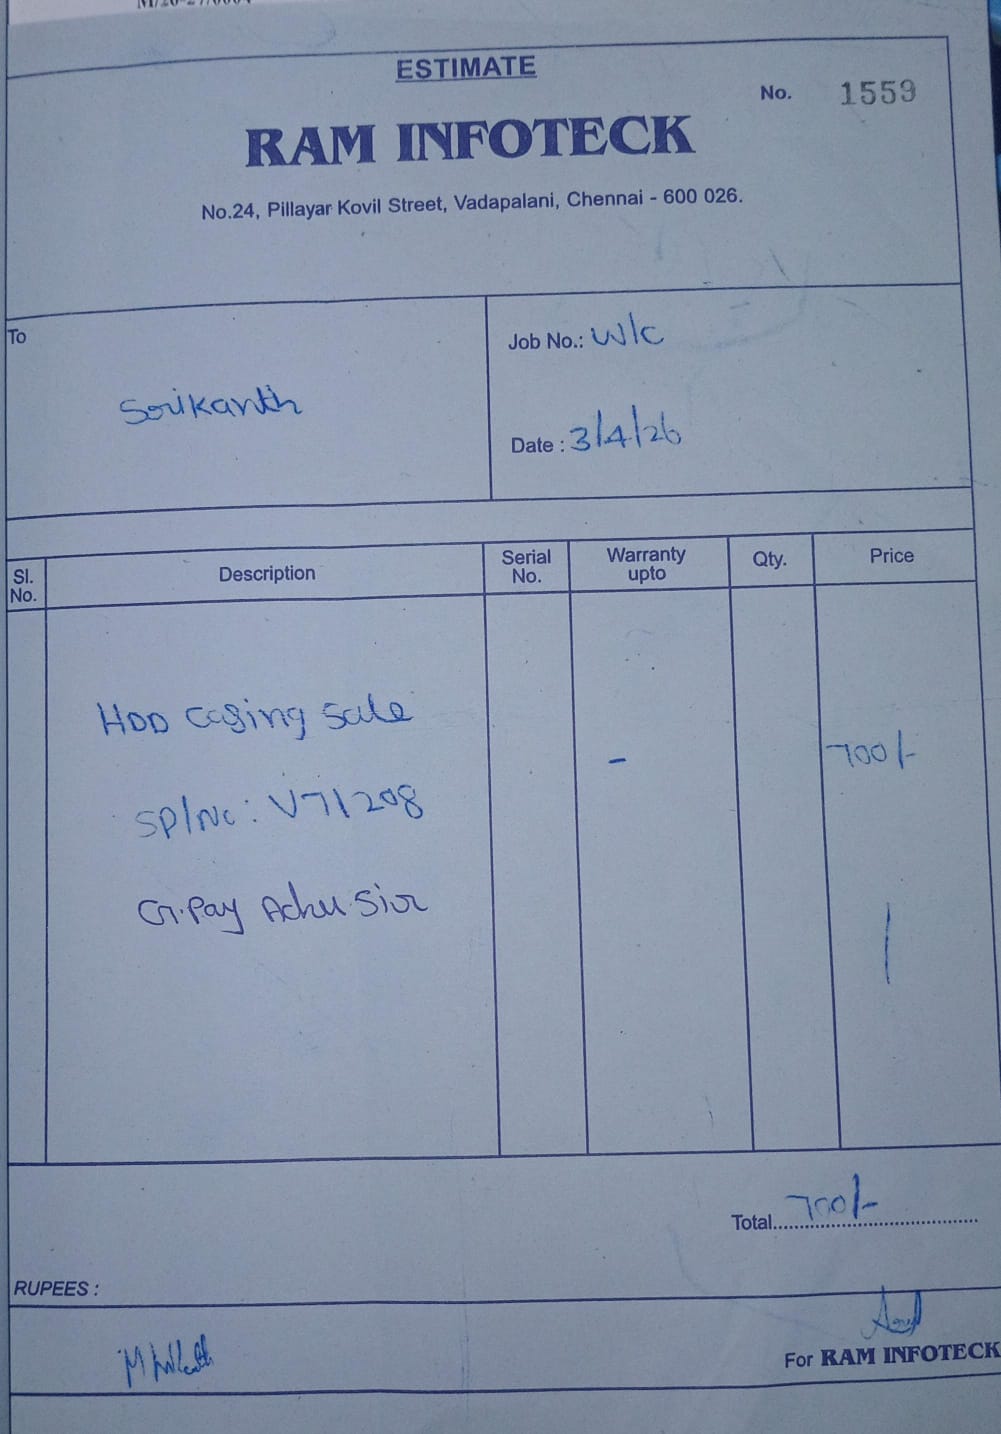 ESTIMATE
No. 1559
RAM INFOTECK
No.24, Pillayar Kovil Street, Vadapalani, Chennai - 600 026.
To
Job No.: W/C
Srikanth
Date : 3/4/26
Sl. No.
Description
Serial No.
Warranty upto
Qty.
Price
HDD Casing Sale
-
700/-
SP/No: V71208
G.Pay
Total 700/-
RUPEES :
For RAM INFOTECK